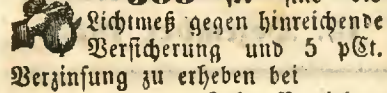 Lichtmeß gegen hinreichende
Versicherung und 5 pCt.
Verzinsung zu erheben bei